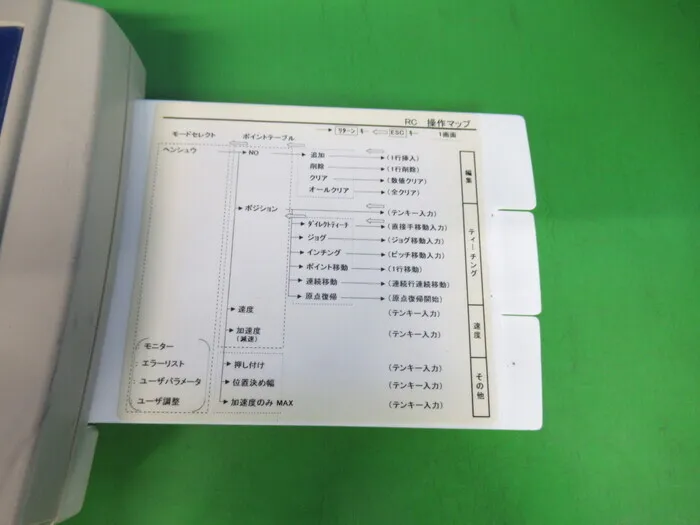 RC 操作マップ
モードセレクト ポイントテーブル → リターン キー ⇦ ESC キー 1画面
ヘンシュウ NO 追加 (1行挿入)
削除 (1行削除)
クリア (数値クリア)
オールクリア (全クリア)
編集
ポジション (テンキー入力)
ダイレクトティーチ (直接手移動入力)
ジョグ (ジョグ移動入力)
インチング (ピッチ移動入力)
ポイント移動 (1行移動)
連続移動 (連続行連続移動)
原点復帰 (原点復帰開始)
ティーチング
速度 (テンキー入力)
加速度 (テンキー入力)
(減速)
速度
モニター
エラーリスト 押し付け (テンキー入力)
ユーザパラメータ 位置決め幅 (テンキー入力)
ユーザ調整 加速度のみ MAX (テンキー入力)
その他